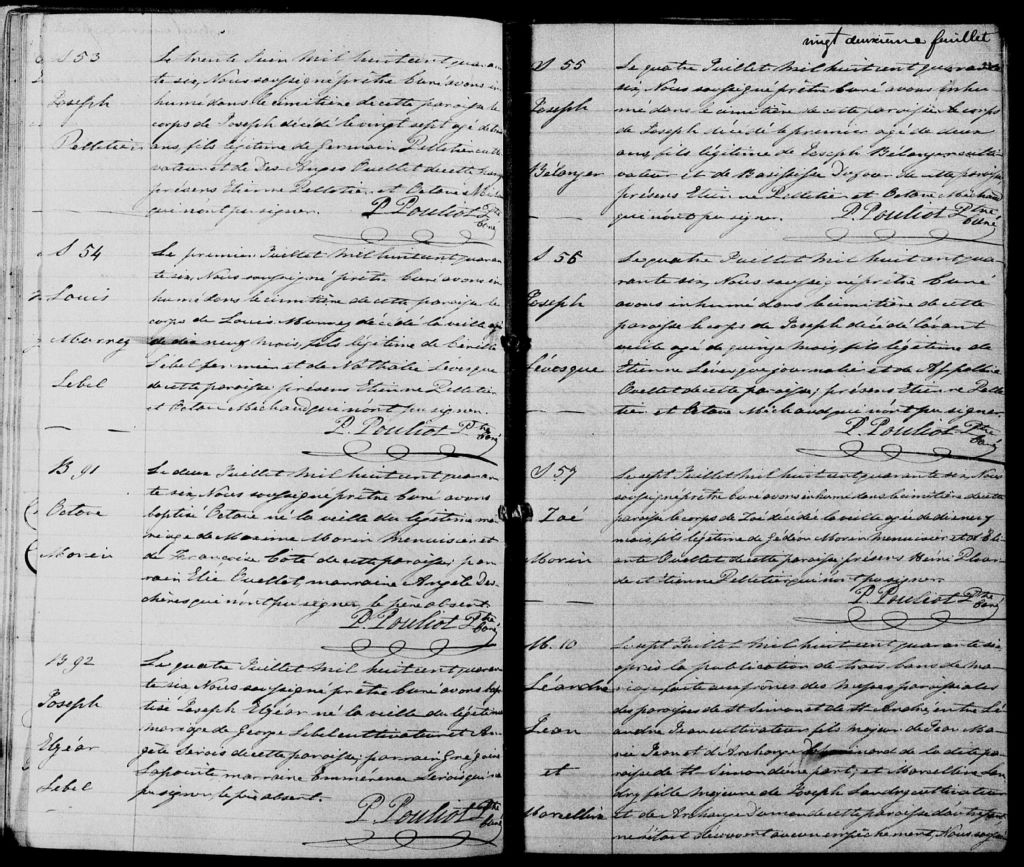 S 53
Joseph
Pelletier
Le trente Juin mil huit cent quaran
te six, Nous soussigné prêtre curé avons in
humé dans le cimitière de cette paroisse le
corps de Joseph décédé le vingt sept agé de
ans, fils légitime de Germain Pelletier culti
vateur et de Des Anges Ouellet de cette
présens Etienne Pelletier et Octave
qui n'ont pu signer.
P. Pouliot Ptre
curé
S 54
Louis
Murrey
Lebel
Le premier Juillet mil huit cent quaran
te six, Nous soussigné prêtre curé avons in
humé dans le cimitière de cette paroisse le
corps de Louis Murrey décédé la veille agé
de dix neuf mois, fils légitime de
Lebel fermier et de Nathalie Levesque
de cette paroisse présens Etienne Pelletier
et Octave Michaud qui n'ont pu signer.
P. Pouliot Ptre
curé
B 91
Octave
Morin
Le deux Juillet mil huit cent quaran
te six, Nous soussigné prêtre curé avons
baptisé Octave né la veille du légitime ma
riage de Maxime Morin menuisier et
de Françoise Coté de cette paroisse; par
rain Elie Ouellet, marraine Angèle Des
chènes qui n'ont pu signer, le père absent.
P. Pouliot Ptre
curé
B 92
Joseph
Elzéar
Lebel
Le quatre Juillet mil huit cent quaran
te six, Nous soussigné prêtre curé avons bap
tisé Joseph Elzéar né la veille du légitime
mariage de George Lebel cultivateur et An
gèle de cette paroisse; parrain Grégoire
Lapointe marraine Emméréna qui n'ont
pu signer, le père absent.
P. Pouliot Ptre
curé
vingt deuxième feuillet
S 55
Joseph
Bélanger
Le quatre Juillet mil huit cent quarante
six, Nous soussigné prêtre curé avons inhu
mé dans le cimitière de cette paroisse le corps
de Joseph décédé le premier agé de deux
ans, fils légitime de Joseph Bélanger culti
vateur et de Dufour de cette paroisse
présens Etienne Pelletier et Octave Michaud
qui n'ont pu signer.
P. Pouliot Ptre
curé
S 56
Joseph
Lévesque
Le quatre Juillet mil huit cent qua
rante six, Nous soussigné prêtre curé
avons inhumé dans le cimitière de cette
paroisse le corps de Joseph décédé l'avant
veille agé de quinze mois, fils légitime de
Etienne Levesque journalier et de Appoline
Ouellet de cette paroisse; présens Etienne Pelle
tier et Octave Michaud qui n'ont pu signer.
P. Pouliot Ptre
curé
S 57
Zoé
Morin
Le sept Juillet mil huit cent quarante six, Nous
soussigné prêtre curé avons inhumé dans le cimitière de cette
paroisse le corps de Zoé décédée la veille agée de dix neuf
mois, fille légitime de Gédéon Morin menuisier et d'
Ouellet de cette paroisse, présens Henri
de et Etienne Pelletier qui n'ont pu signer.
P. Pouliot Ptre
curé
M. 10
Léandre
Jean
et
Marcelline
Le sept Juillet mil huit cent quarante six
après la publication de trois bans de ma
riage faite aux prônes des messes paroissiales
des paroisses de St Simon et de St André, entre Lé
andre Jean cultivateur fils majeur de Jean Ma
rie Jean et d'Archange de la dite pa
roisse de St Simon d'une part; et Marcelline Lan
dry, fille mineure de Joseph Landry cultivateur
et de Archange Dumond de cette paroisse d'autre part
ne s'étant découvert aucun empêchement, Nous soussigné